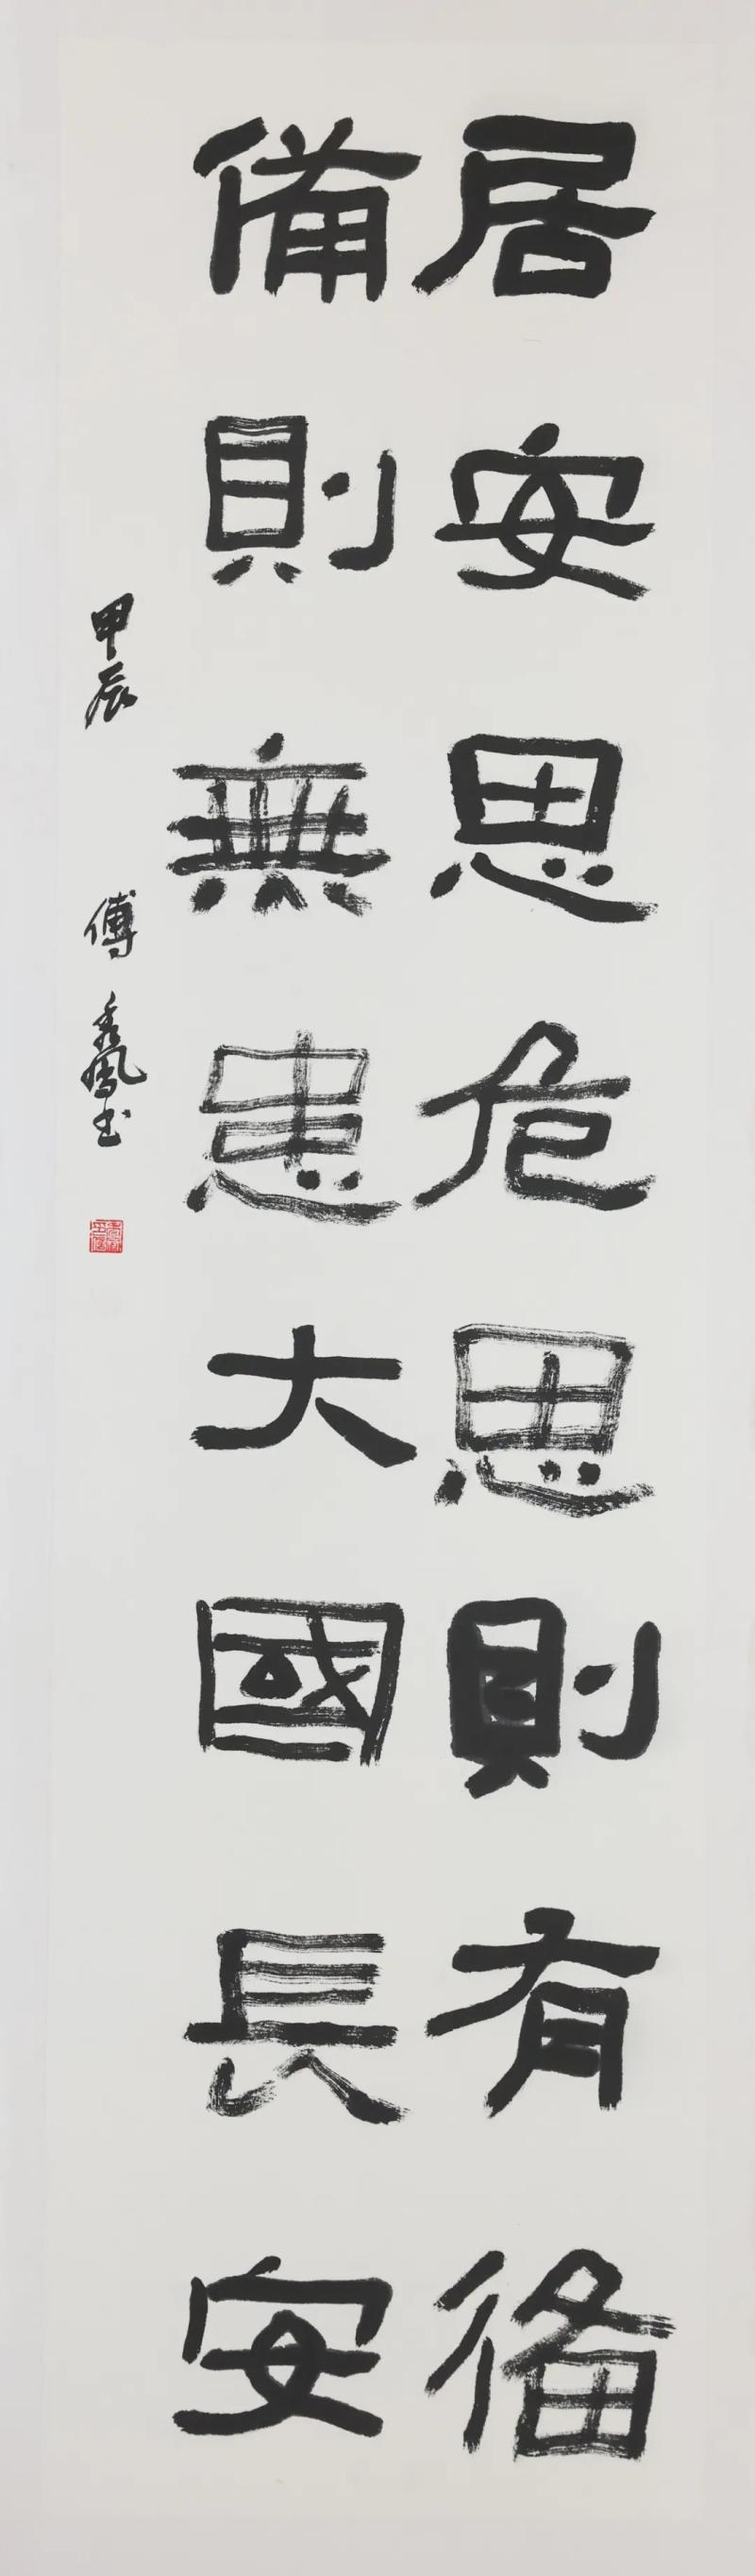 居安思危思則有備
備則無患大國長安
甲辰 傅秀鳳书